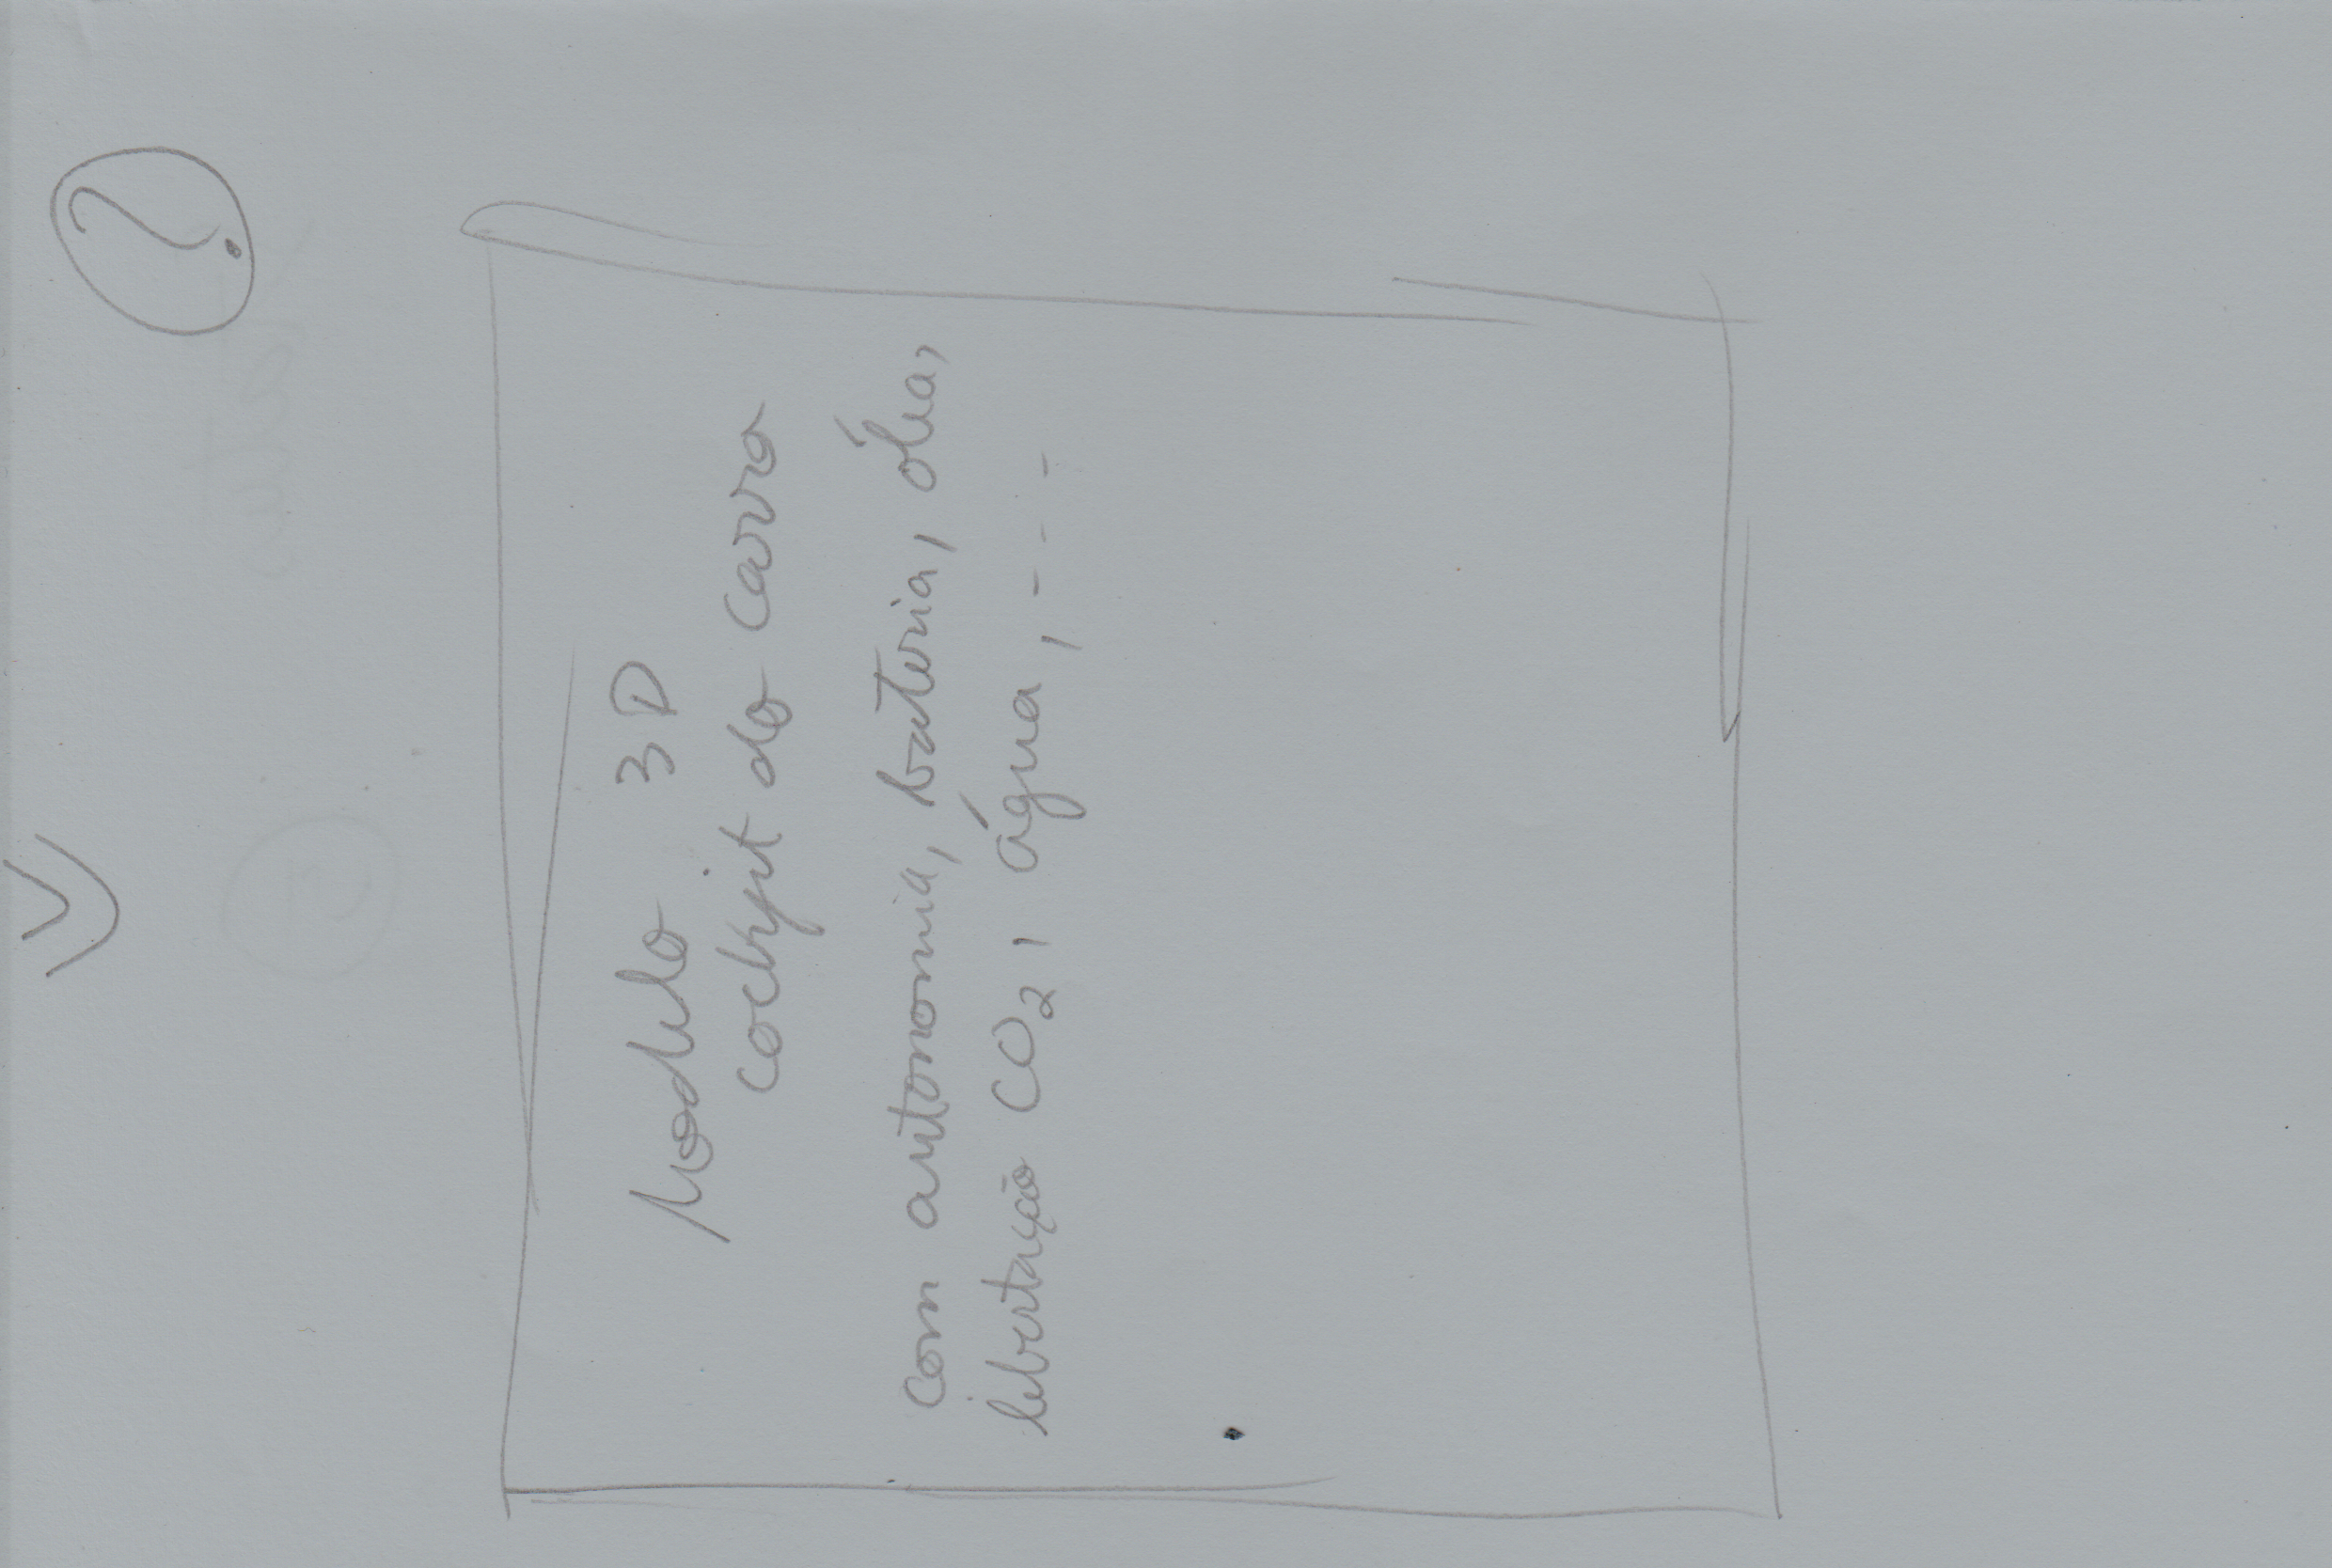 ?
Modelo 3D
cockpit do carro
com autonomia, bateria, óleo,
libertação CO2, água, - - -